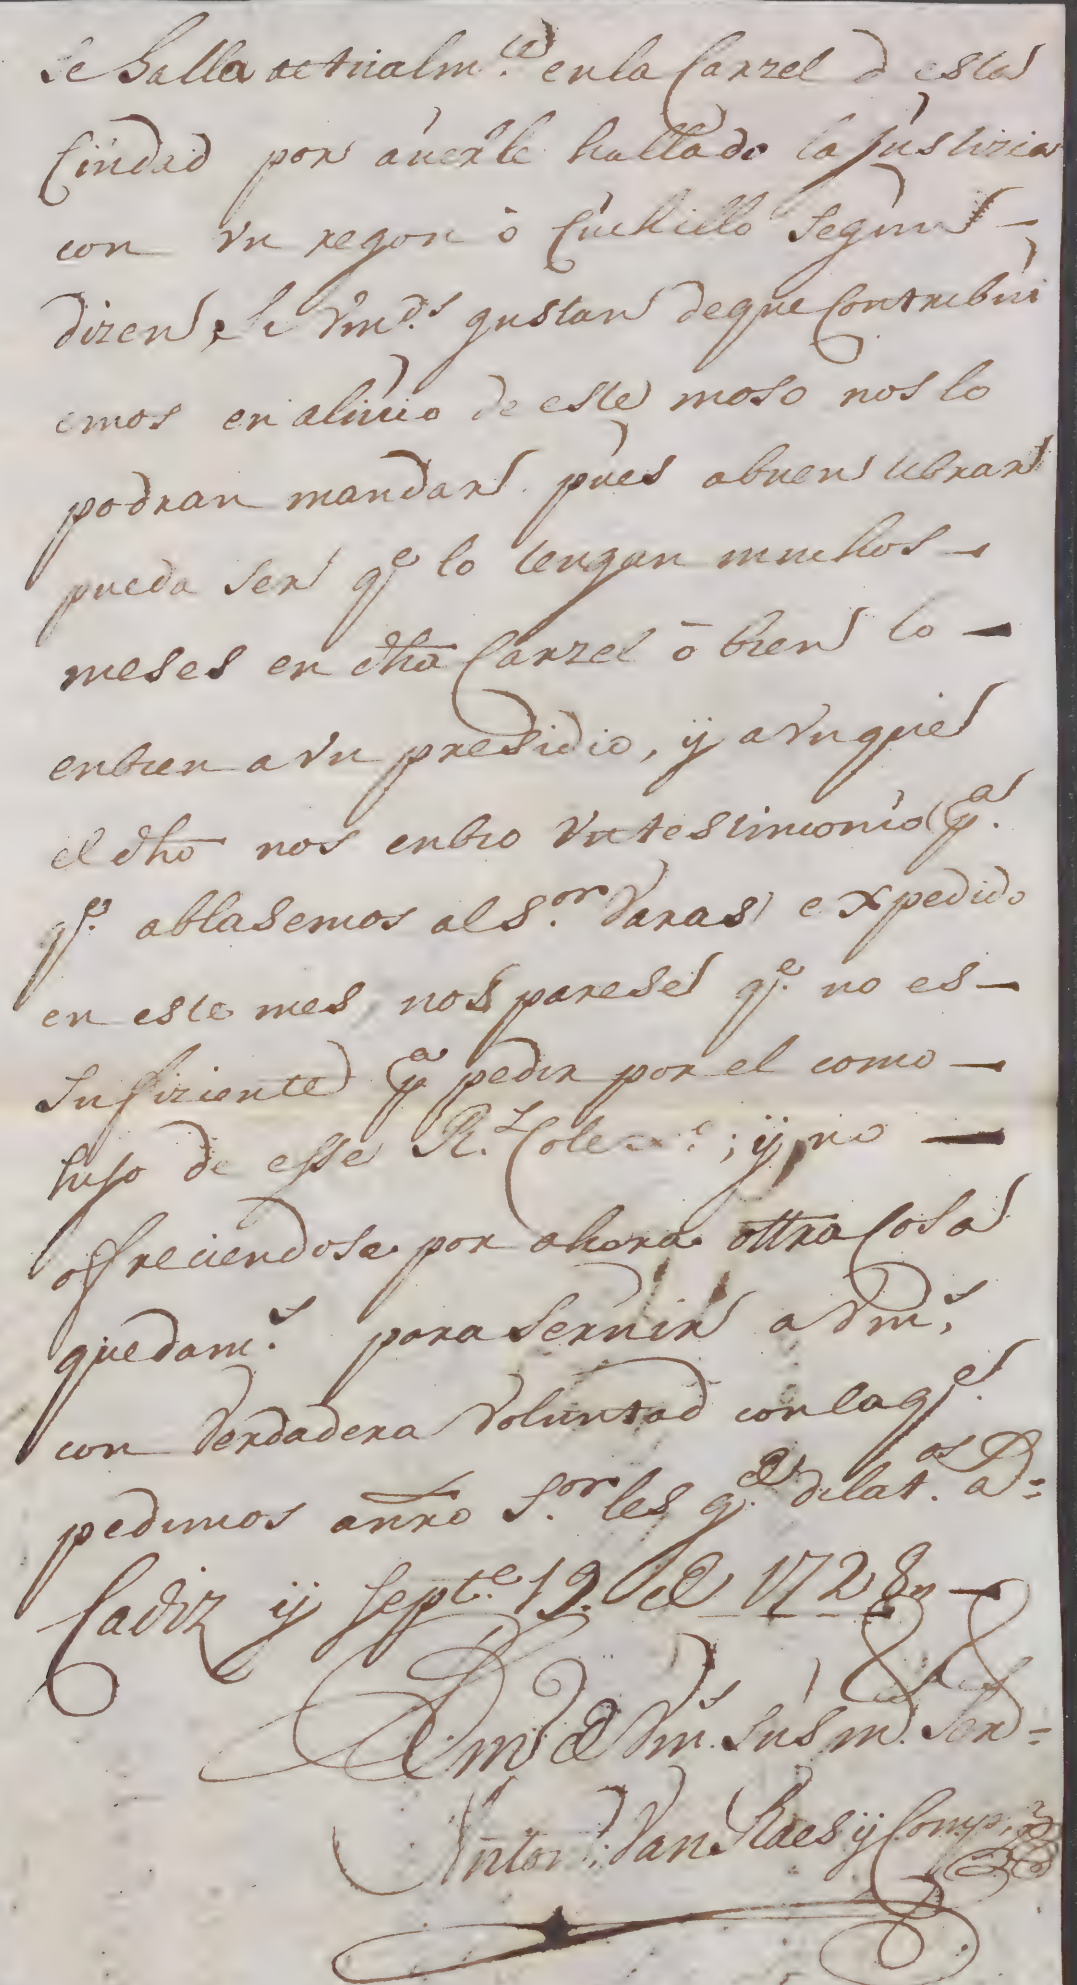 se halla actualm.te en la Carzel d esta
Ciudad por auerle hallado la justizia
con vn regon ô Cuchillo segun —
dizen, si Vmd.s gustan deque Contribui
emos en aliuio de este moso nos lo
podran mandar pues abuen librar
pueda ser q.e lo tengan muchos —
meses en dha Carzel ô bien lo —
enbien a vn presidio, ÿ avnque
el dho nos enbio vn testimonio p.a
q.e ablasemos al s.or Varas expedido
en este mes, nos parese q.e no es —
sufiziente p.a pedir por el como —
hijo de esse R.l Colex.o; ÿ no —
ofreciendose por ahora ottra Cosa
quedam.s para seruir a Vm.s
con Verdadera Voluntad con la q.e
pedimos anro S.or les g.e dilat.os a.s =
Cadiz ÿ sept.e 19. de 1728 —
BLM de Vm.s sus m. Ser =
Anton. Van Haes ÿ Comp.a